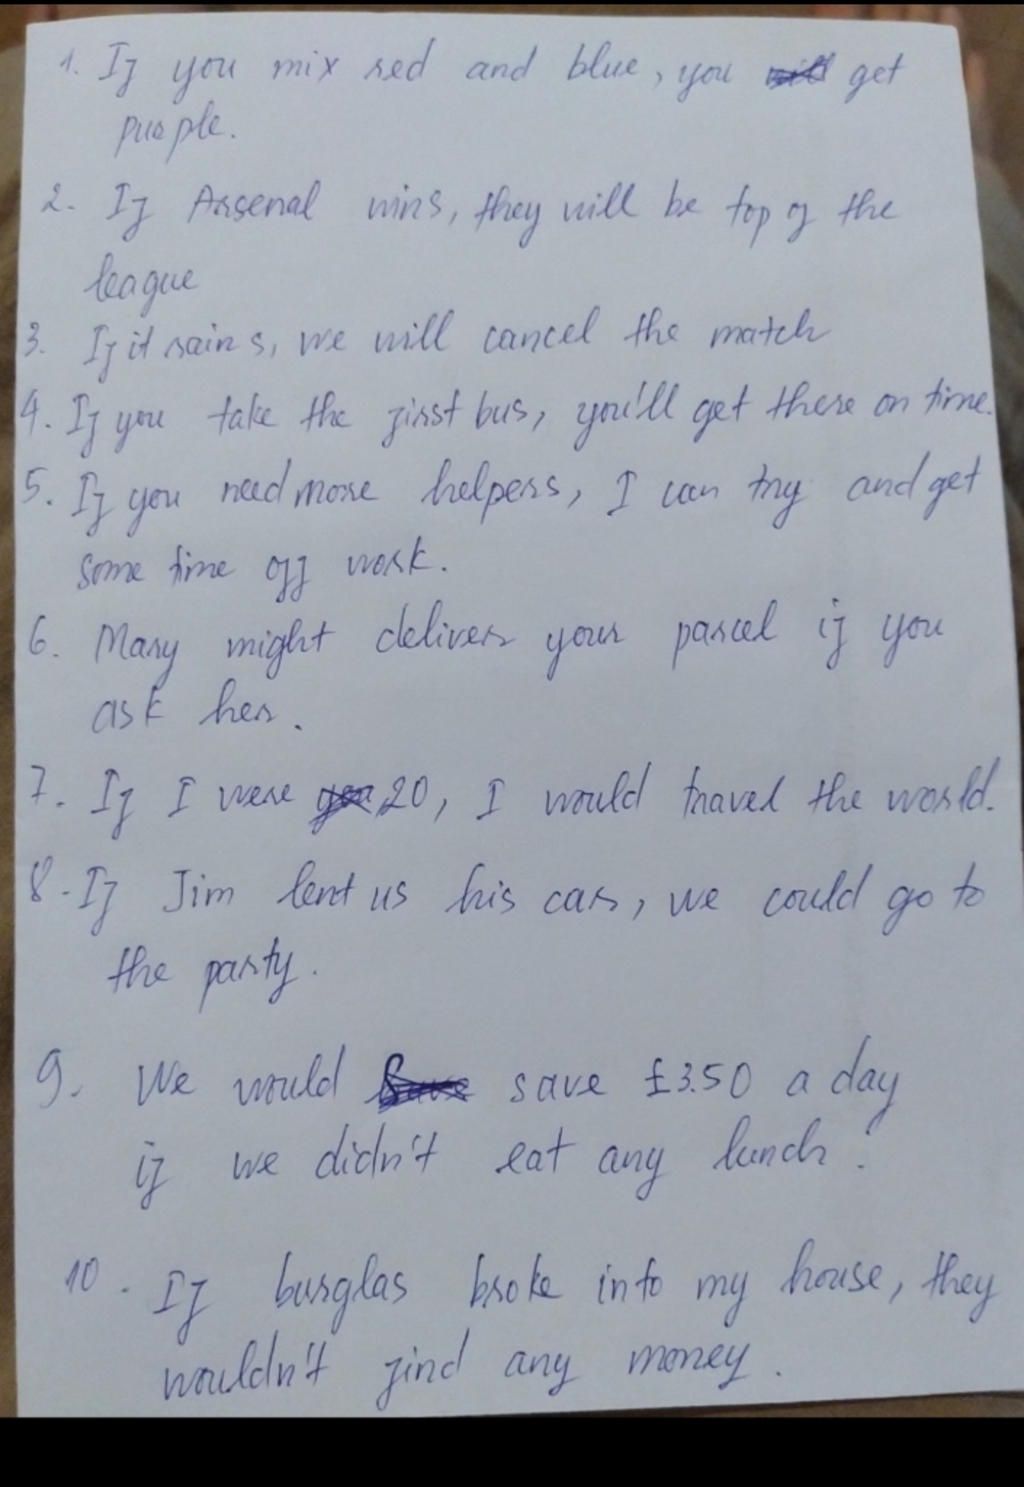 1. If you mix red and blue, you get
purple.
2. If Arsenal wins, they will be top of the
league
3. If it rains, we will cancel the match
4. If you take the first bus, you'll get there on time.
5. If you need more helpers, I can try and get
some time off work.
6. Mary might deliver your parcel if you
ask her.
7. If I were 20, I would travel the world.
8. If Jim lent us his car, we could go to
the party.
9. We would save £3.50 a day
if we didn't eat any lunch.
10. If burglas broke into my house, they
wouldn't find any money.